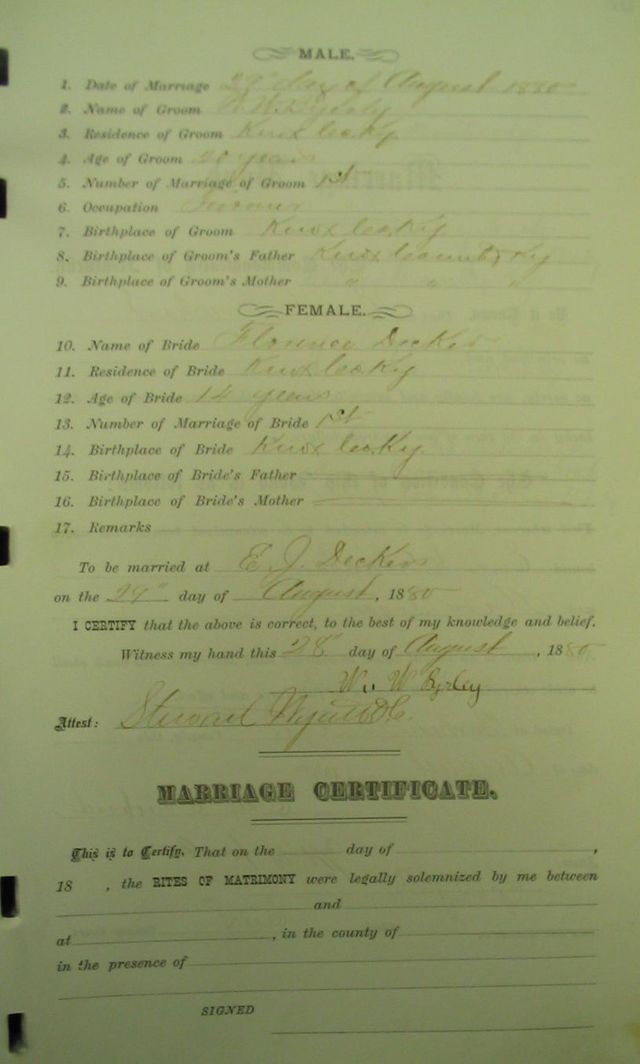 MALE.
1. Date of Marriage 29" day of August 1880
2. Name of Groom W. W. Byrley
3. Residence of Groom Knox Co Ky
4. Age of Groom 20 years
5. Number of Marriage of Groom 1st
6. Occupation Farmer
7. Birthplace of Groom Knox Co Ky
8. Birthplace of Groom's Father Knox County Ky
9. Birthplace of Groom's Mother " " "
FEMALE.
10. Name of Bride Florence Decker
11. Residence of Bride Knox Co Ky
12. Age of Bride 14 years
13. Number of Marriage of Bride 1st
14. Birthplace of Bride Knox Co Ky
15. Birthplace of Bride's Father
16. Birthplace of Bride's Mother
17. Remarks
To be married at E. J. Deckers
on the 29" day of August, 1880
I CERTIFY that the above is correct, to the best of my knowledge and belief.
Witness my hand this 28" day of August, 1880
W. W Byrley
Attest: Stewart
MARRIAGE CERTIFICATE.
This is to Certify, That on the day of ,
18 , the RITES OF MATRIMONY were legally solemnized by me between
and
at , in the county of
in the presence of
SIGNED